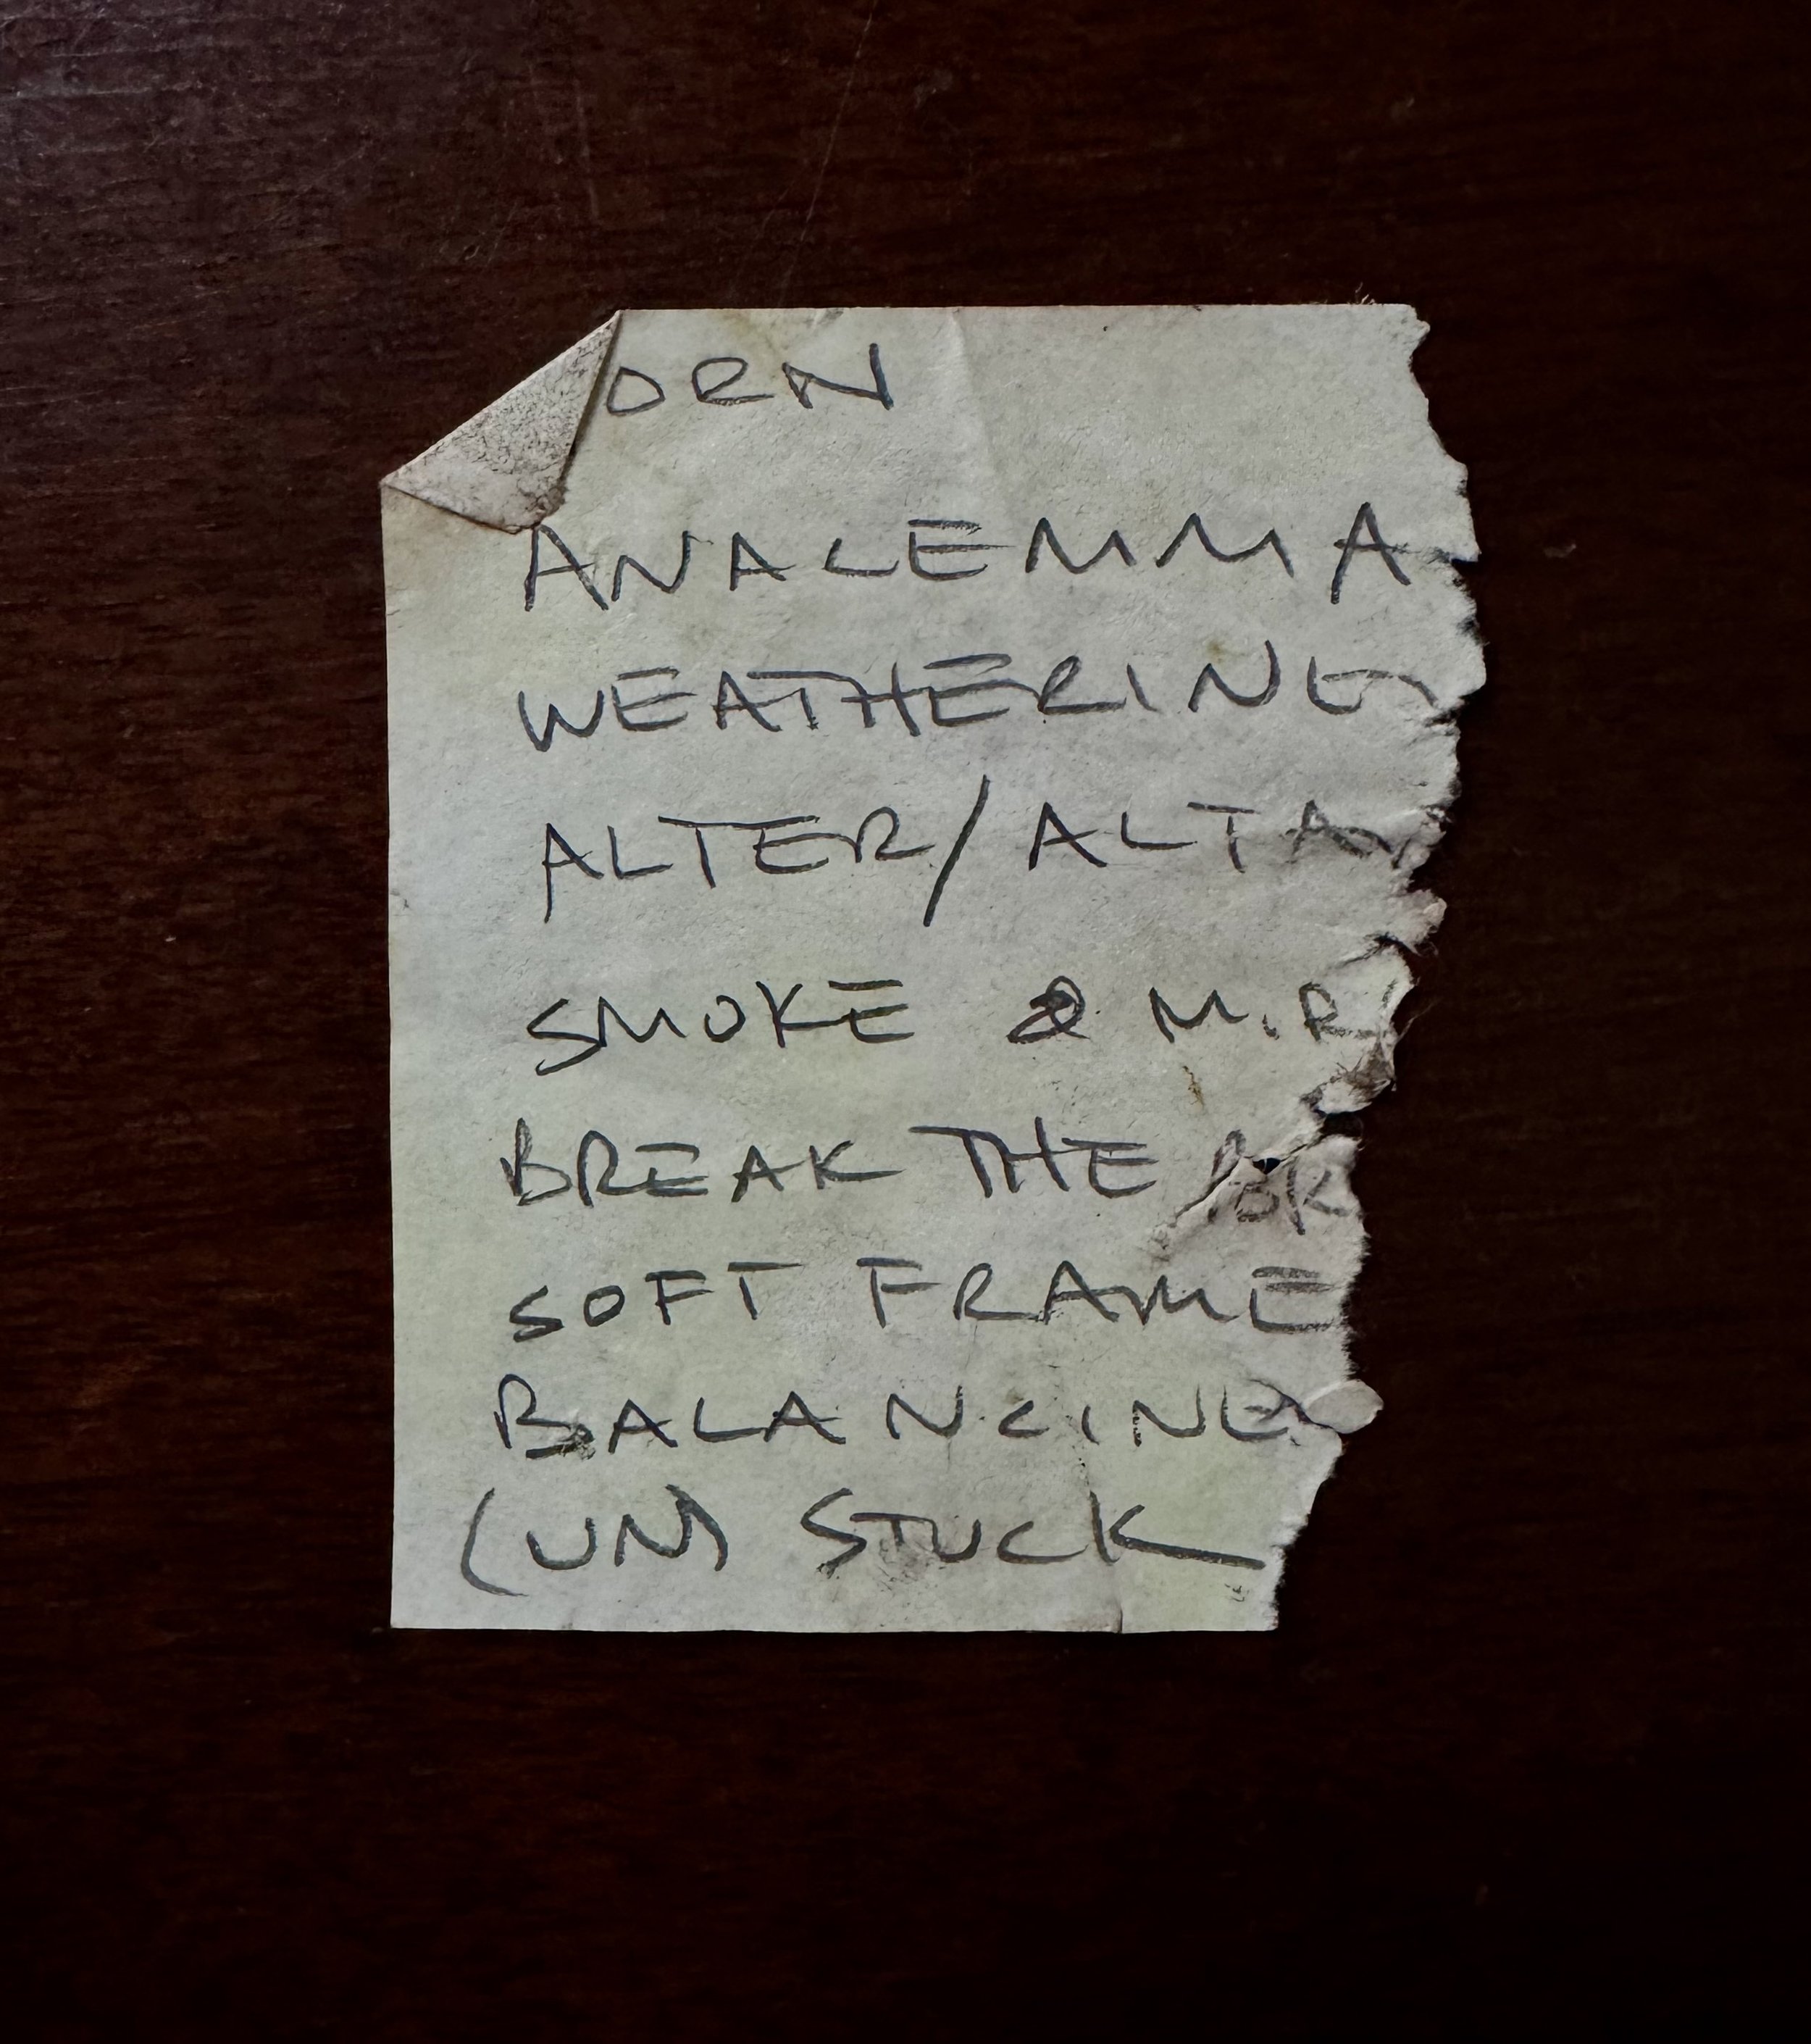 ORN
ANALEMMA
WEATHERING
ALTER/ALTA
SMOKE & MIR
BREAK THE
SOFT FRAME
BALANCING
(UN) STUCK